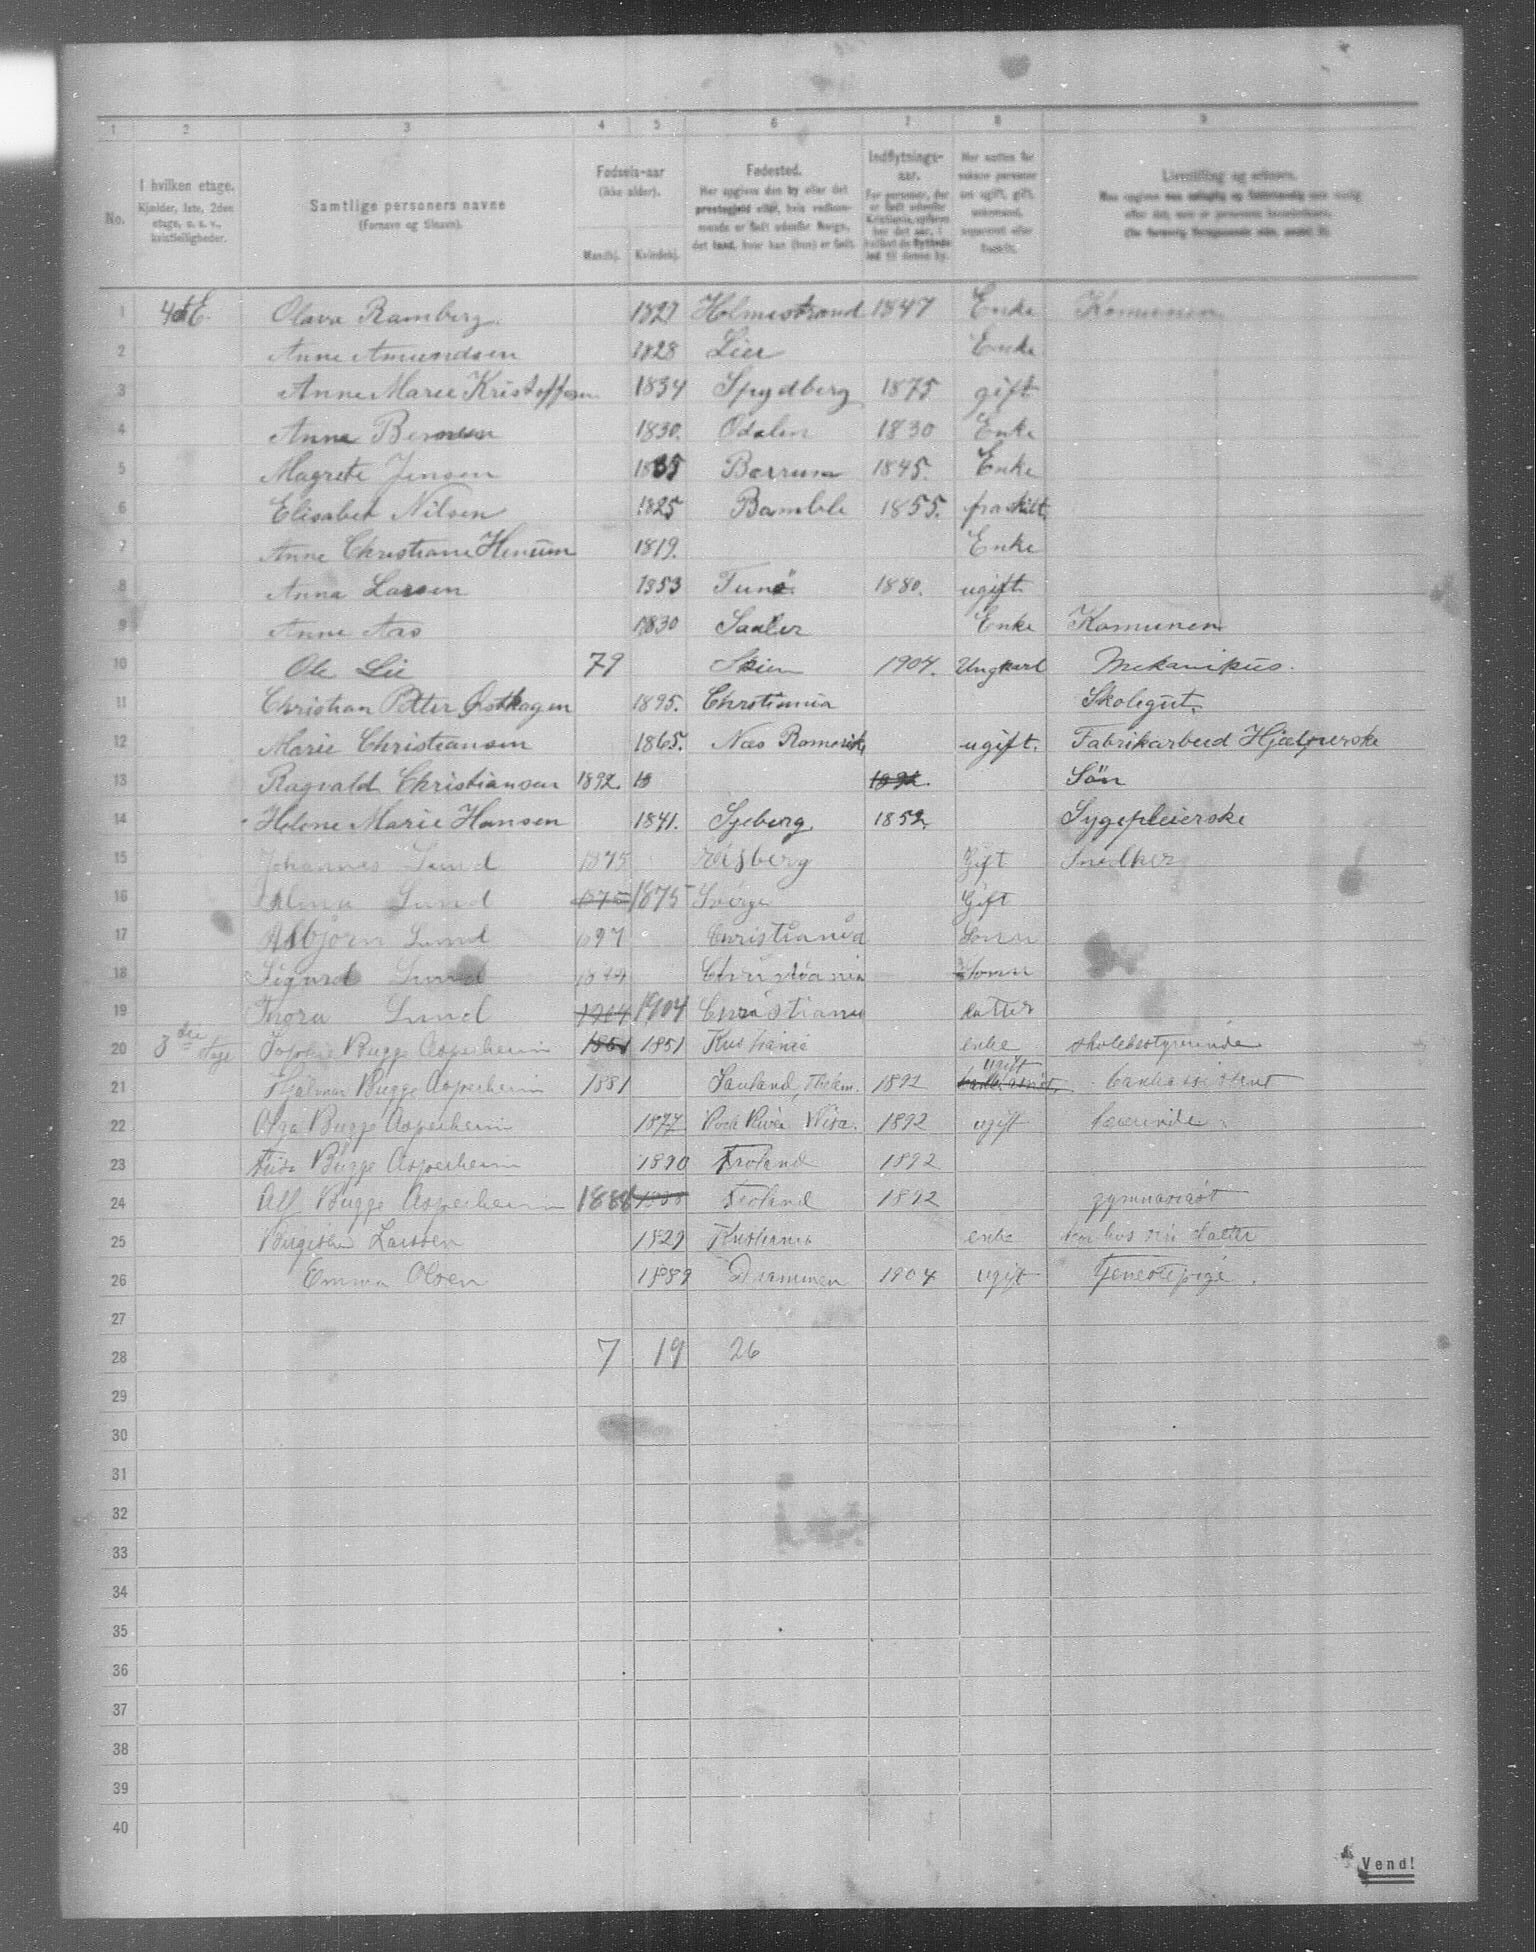 1 2 3 4 5 6 7 8 9
No.
I hvilken etage. Kjælder, 1ste, 2den etage, o. s. v., kvistleiligheder.
Samtlige personers navne (Fornavn og tilnavn).
Fødsels-aar (ikke alder).
Mandkj. Kvindekj.
Fødested. Her opgives den by eller det prestegjeld eller, hvis vedkommende er født udenfor Norge, det land, hvor han (hun) er født.
Indflytnings-aar. For personer, der er født udenfor Kristiania, opføres her det aar, i hvilket de flyttede ind til denne by.
Livsstilling og erhverv.
1 4d E. Olava Ramberg. 1827 Holmestrand 1847 Enke Komunen
2 Anne Amundsen 1828 Lier Enke
3 Anne Marie Kristoffersen 1834 Spydberg 1875 gift
4 Anna Bernsen 1830. Odalen 1830 Enke
5 Magrete Jensen 1835 Bærrum 1845. Enke
6 Elisabet Nilsen 1825 Bamble 1855. fraskilt
7 Anne Christiane Henum 1819. Enke
8 Anna Larsen 1853 Tunø 1880. ugift
9 Anne Aas 1830 Saaler Enke Komunen
10 Ole Lie 79 Skien 1904. Ungkarl Mekanikus.
11 Christian Petter Østhagen 1895. Chrstiania Skolegut.
12 Marie Christiansen 1865. Næs Romerik ugift. Fabrikarbeid Hjælperske
13 Ragvald Christiansen 1892. Sön
14 Helene Marie Hansen 1841. Sjeberg 1852. Sygepleierske
15 Johannes Lund 1875 Gift Snedker
16 Alma Lund 1875 1875 Sverge Gift
17 Asbjørn Lund 1897 Christiania Sønn
18 Sigurd Lund Christiania Sønn
19 Thora Lund 1904 1904 Christiania datter
20 3die Etage Sophie Bugge Asperheim 1851 1851 Kristiania enke skolebestyrerinde
21 Hjalmar Bugge Asperheim 1881 Sauland, Thelem. 1892 ugift bankassistent
22 Olga Bugge Asperheim 1877 Rock River Wisc. 1892 ugift lærerinde
23 Bugge Asperheim 1890 Froland 1892
24 Alf Bugge Asperheim 1888 1888 Froland 1892 gymnasiast
25 Birgithe Larssen 1829 Kristiania enke bor hos sin datter
26 Emma Olsen 1889 Drammen 1904 ugift tjenestepige.
27
28 7 19 26
29
30
31
32
33
34
35
36
37
38
39
40
Vend!